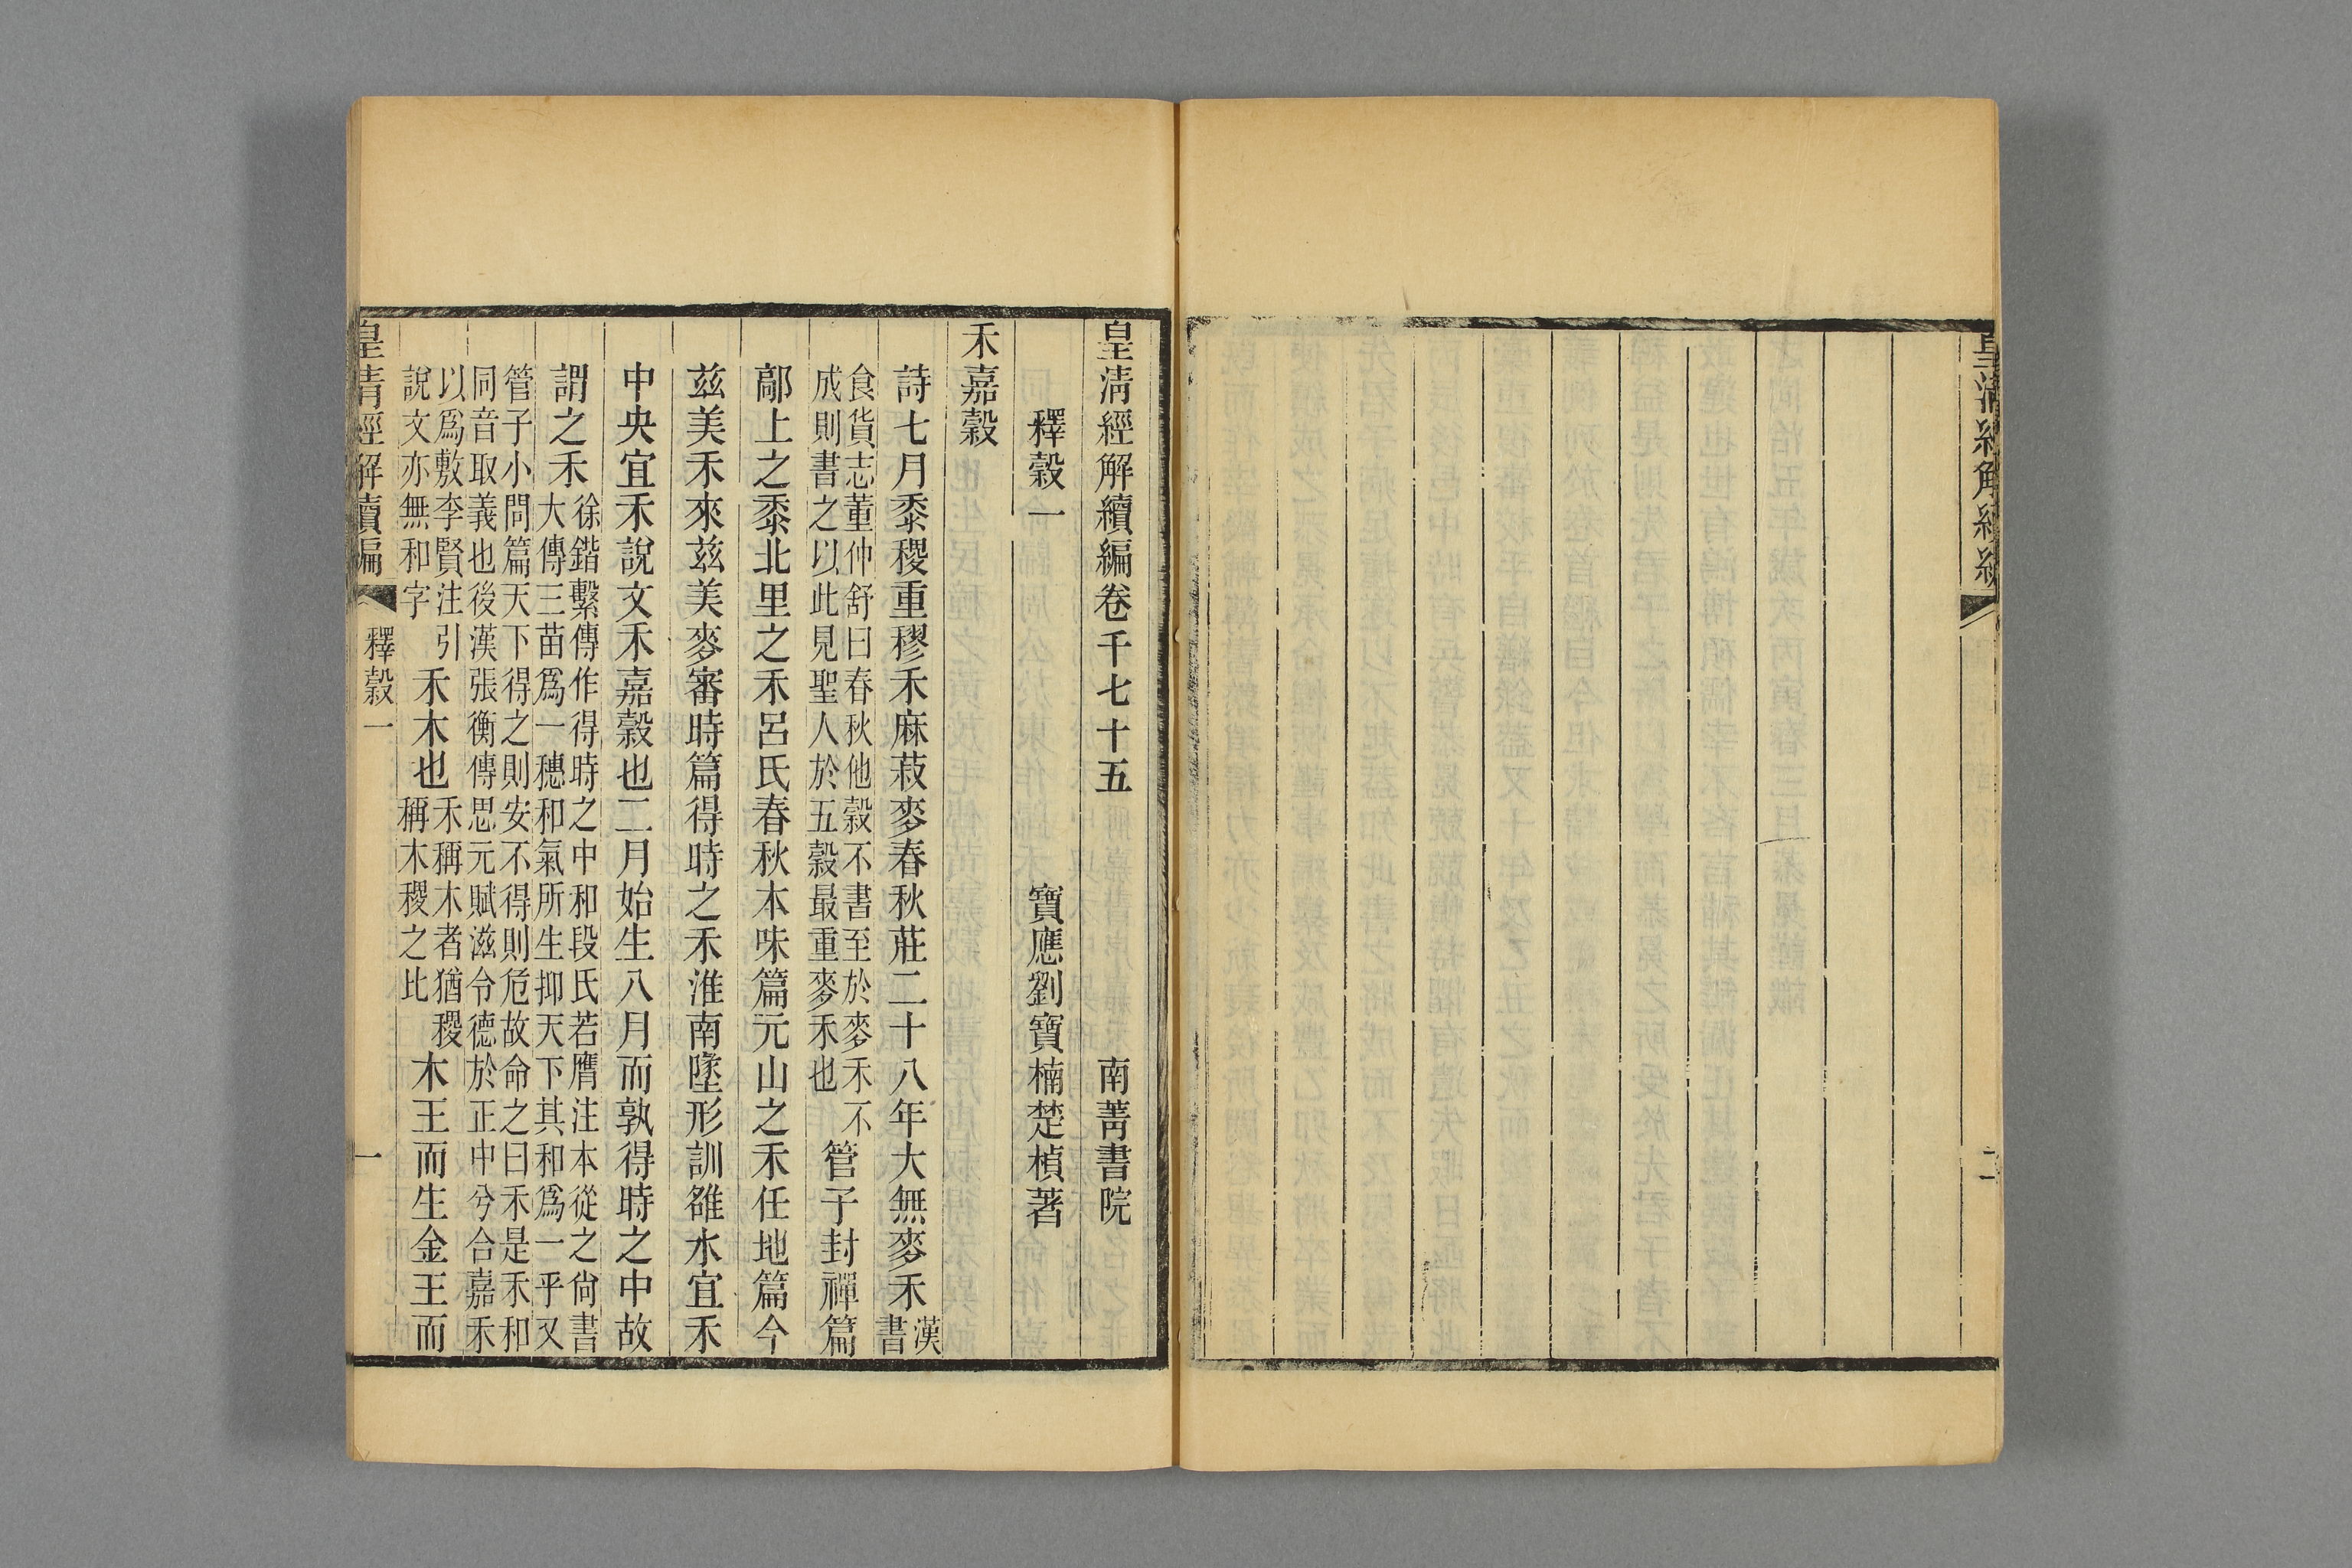 皇清經解續編
二
皇清經解續編卷千七十五　南菁書院
釋穀一　寶應劉寶楠楚楨著
禾嘉穀
詩七月黍稷重穋禾麻菽麥春秋莊二十八年大無麥禾漢書
食貨志董仲舒曰春秋他穀不書至於麥禾不
成則書之以此見聖人於五穀最重麥禾也管子封禪篇
鄗上之黍北里之禾呂氏春秋本味篇元山之禾任地篇今
茲美禾來茲美麥審時篇得時之禾淮南墬形訓雒水宜禾
中央宜禾說文禾嘉穀也二月始生八月而孰得時之中故
謂之禾徐鍇繫傳作得時之中和段氏若膺注本從之尙書
大傳三苗爲一穗和氣所生抑天下其和爲一乎又
管子小問篇天下得之則安不得則危故命之曰禾是禾和
同音取義也後漢張衡傳思元賦滋令德於正中兮合嘉禾
以爲敷李賢注引
說文亦無和字禾木也禾稱木者猶稷
稱木稷之比木王而生金王而
皇清經解續編　釋穀一　一